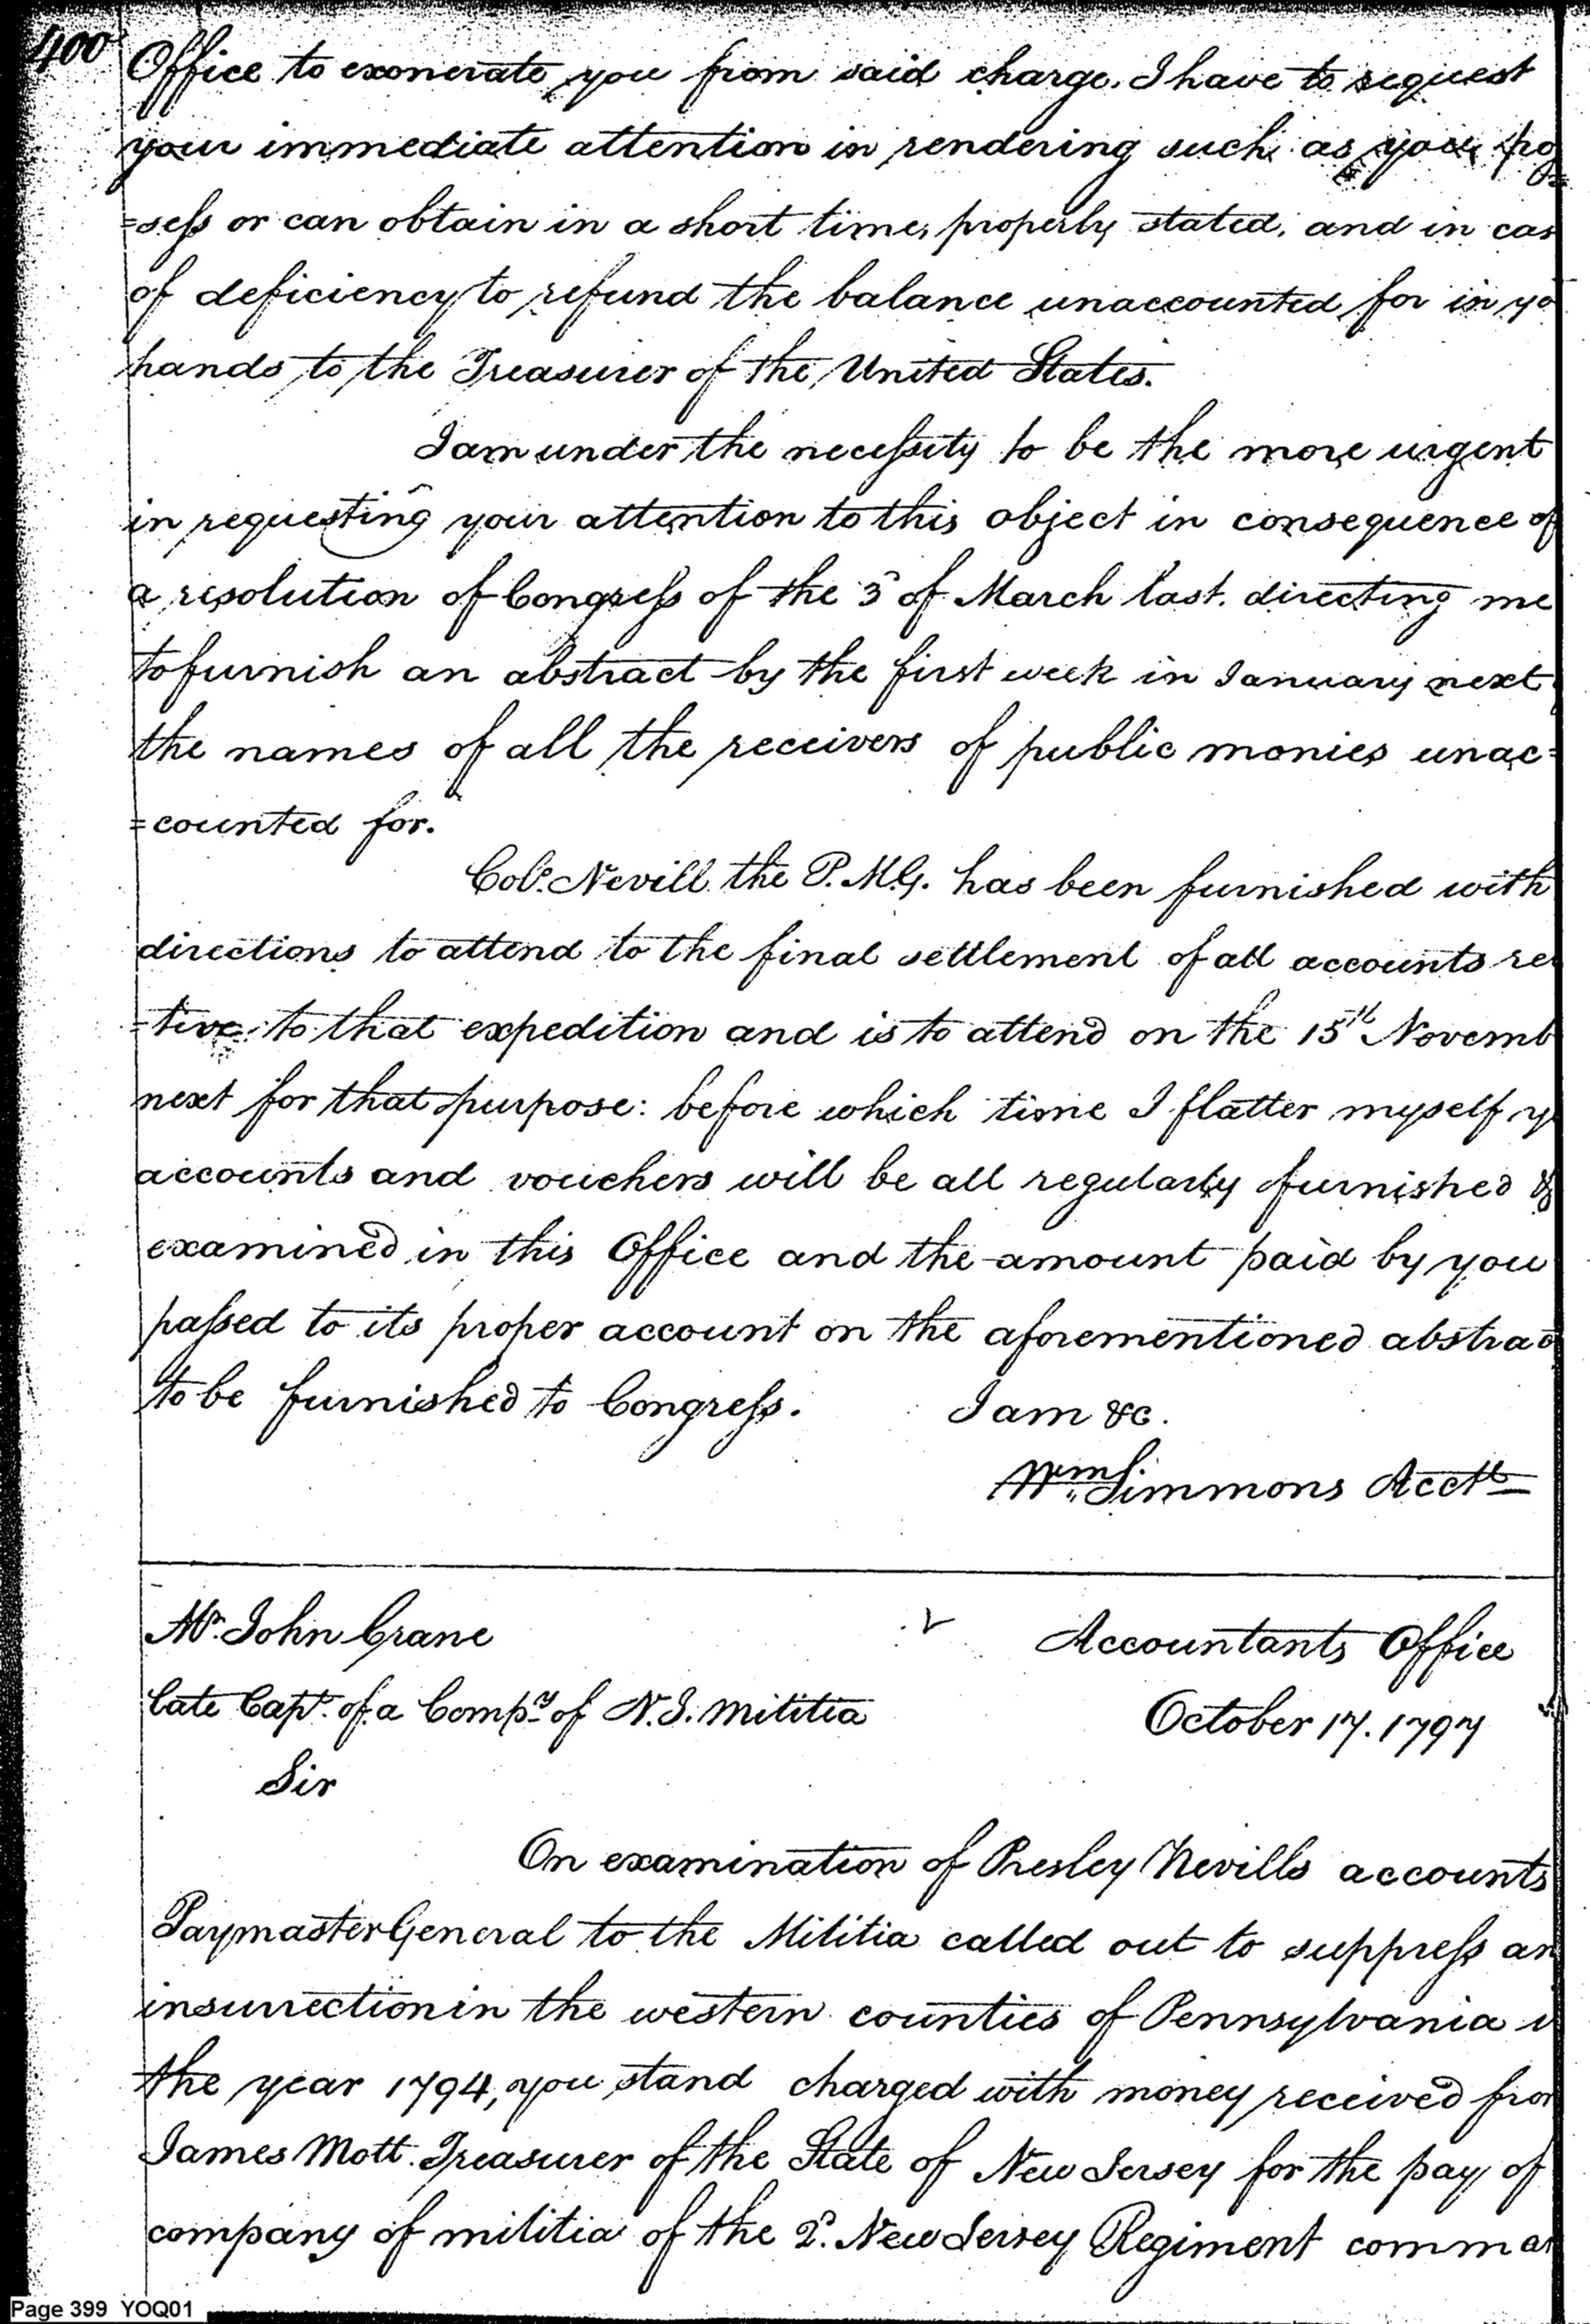 400
Office to exonerate you from said charge. I have to request
your immediate attention in rendering such as you pos
=sess or can obtain in a short time, properly stated, and in cas
of deficiency to refund the balance unaccounted for in yo
hands to the Treasurer of the United States.
I am under the necessity to be the more urgent
in requesting your attention to this object in consequence of
a resolution of Congress of the 3d of March last. directing me
to furnish an abstract by the first week in January next
the names of all the receivers of public monies unac=
=counted for.
Colo. Nevill the P.M.G. has been furnished with
directions to attend to the final settlement of all accounts re
=tive to that expedition and is to attend on the 15th Novemb
next for that purpose: before which time I flatter myself y
accounts and vouchers will be all regularly furnished &
examined in this Office and the amount paid by you
passed to its proper account on the aforementioned abstrac
to be furnished to Congress. I am &c.
Wm. Simmons Acctt
Mr. John Crane
Accountants Office
late Capt. of a Compy. of N.J. Militia
October 17. 1797
Sir
On examination of Presley Nevills accounts
Paymaster General to the Militia called out to suppress an
insurrection in the western counties of Pennsylvania i
the year 1794, you stand charged with money received fro
James Mott. Treasurer of the State of New Jersey for the pay of
company of militia of the 2d. New Jersey Regiment comma
Page 399 YOQ01